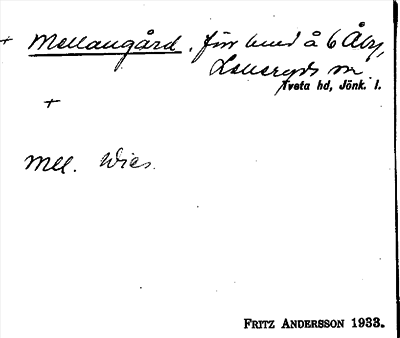 + Mellangård, för hmd å 6 Åby,
Lekeryds sn.
Tveta hd, Jönk. l.
+
Mell.
FRITZ ANDERSSON 1933.